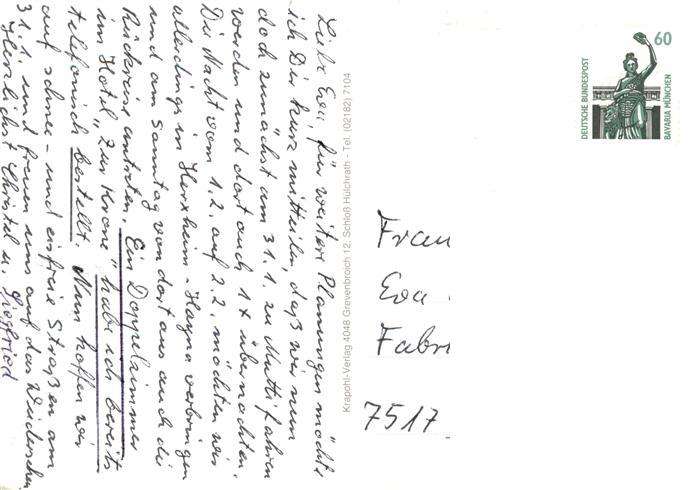 Liebe Eva, für weitere Planungen möcht
ich Dir kurz mitteilen, daß wir nun
doch zunächst am 31.1. zu Mutti fahren
werden und dort auch 1x übernachten.
Die Nacht vom 1.2. auf 2.2. möchten wir
allerdings in Herxheim-Hayna verbringen
und am Sonntag von dort aus auch die
Rückreise antreten. Ein Doppelzimmer
im Hotel "Zur Krone" habe ich bereits
telefonisch bestellt. Nun hoffen wir
auf schnee- und eisfreie Straßen am
31.1. und freuen uns auf das Wiedersehen
Herzlichst Christel u. Siegfried
Krapohl-Verlag 4048 Grevenbroich 12, Schloß Hülchrath - Tel. (02182) 7104
60
DEUTSCHE BUNDESPOST
BAVARIA MÜNCHEN
Frau
Eva
Fabri
7517